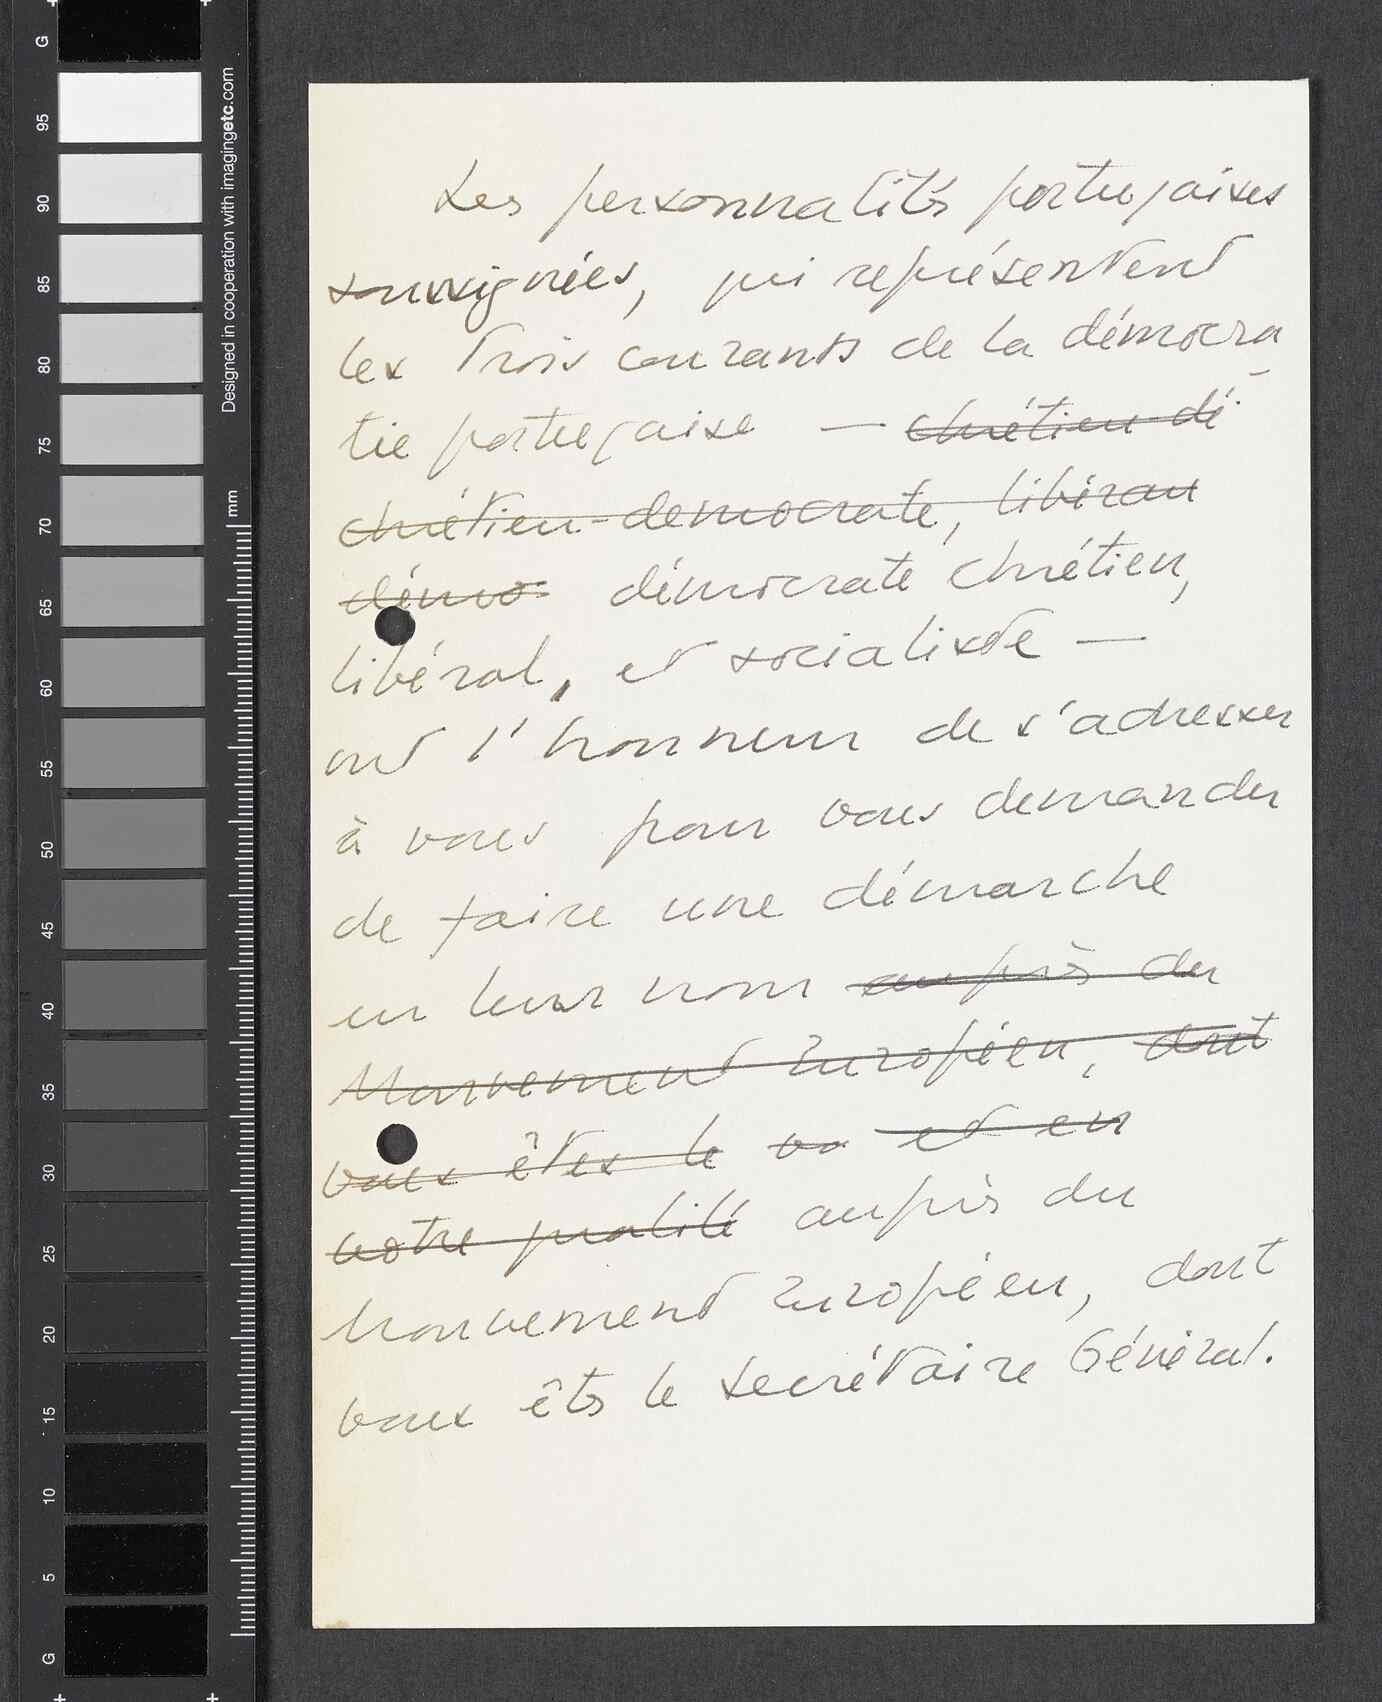 Les personnalités portugaises
soussignées, qui représentent
les trois courants de la démocra-
tie portugaise — chrétien dé-
chrétien-democrate, libéran
démo démocrate chrétien,
libéral, et socialiste —
ont l'honneur de s'adresser
à vous pour vous demander
de faire une démarche
en leur nom auprès du
Mouvement Européen, dont
vous êtes le vo et en
votre qualité auprès du
Mouvement Européen, dont
vous êtes le Secrétaire Général.
G
95
90
85
80
75
70
65
60
55
50
45
40
35
30
25
20
15
10
5
G
Designed in cooperation with imagingetc.com
mm